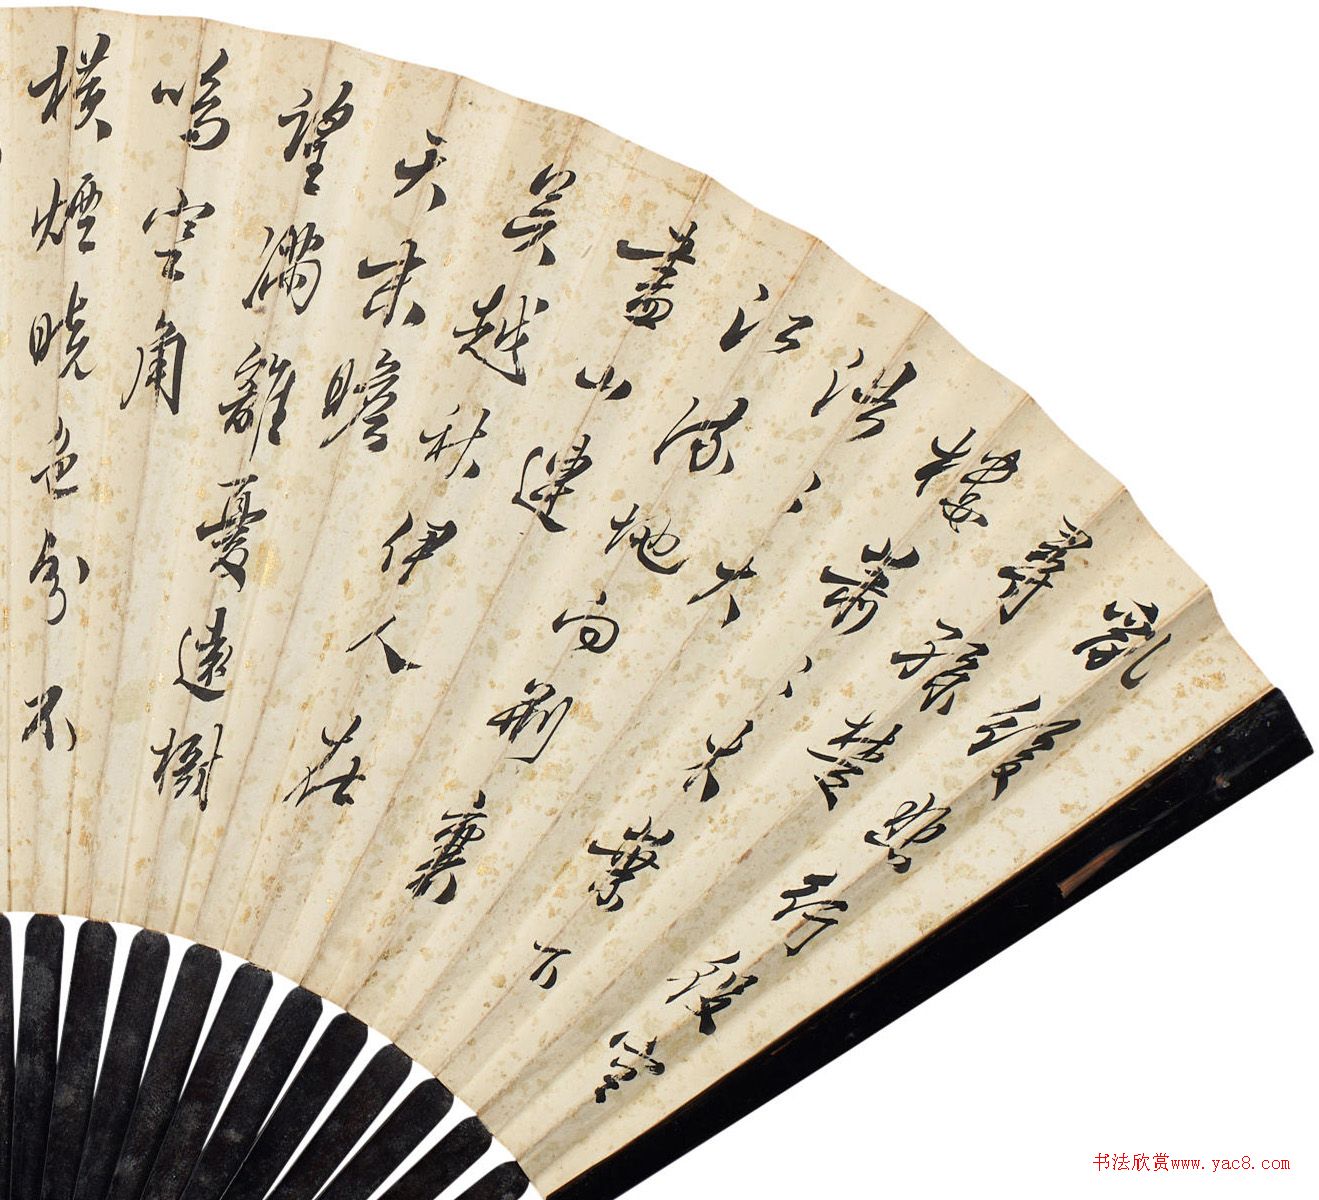 亂後悲行役空
尋孫楚
樓蕭〻木葉下
浩〻大
江流地向荊襄
盡山連
吳越秋伊人在
天末瞻
望滿離憂遠樹
鳴空角
橫煙曉色分不
书法欣赏www.yac8.com